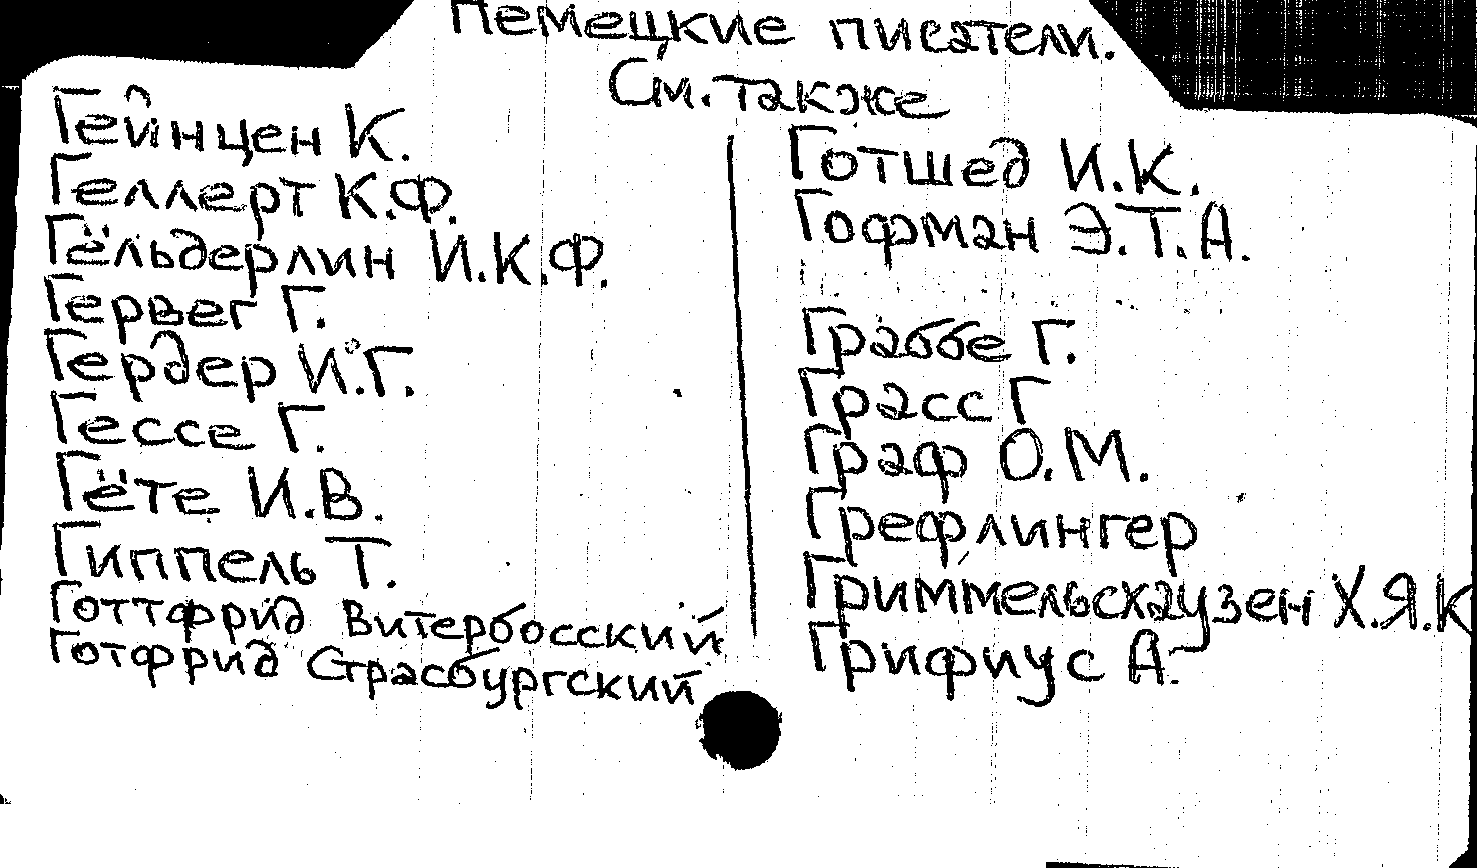 Немецкие писатели.
См. также
Гейнцен К.
Геллерт К.Ф.
Гёльдерлин И.К.Ф.
Гервег Г.
Гердер И.Г.
Гессе Г.
Гёте И.В.
Гиппель Т.
Готтфрид Витербосский
Готфрид Страсбургский
Готшед И.К.
Гофман Э.Т.А.
Граббе Г.
Грасс Г
Граф О.М.
Грефлингер
Гриммельсхаузен Х.Я.К
Грифиус А.